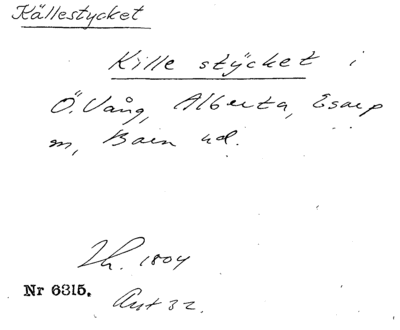 Källestycket
Kille stÿcket i
Ö. Vång, Alberta, Esarp
m, Barn ud.
Lh. 1804
Nr 6315.
Avt 32.